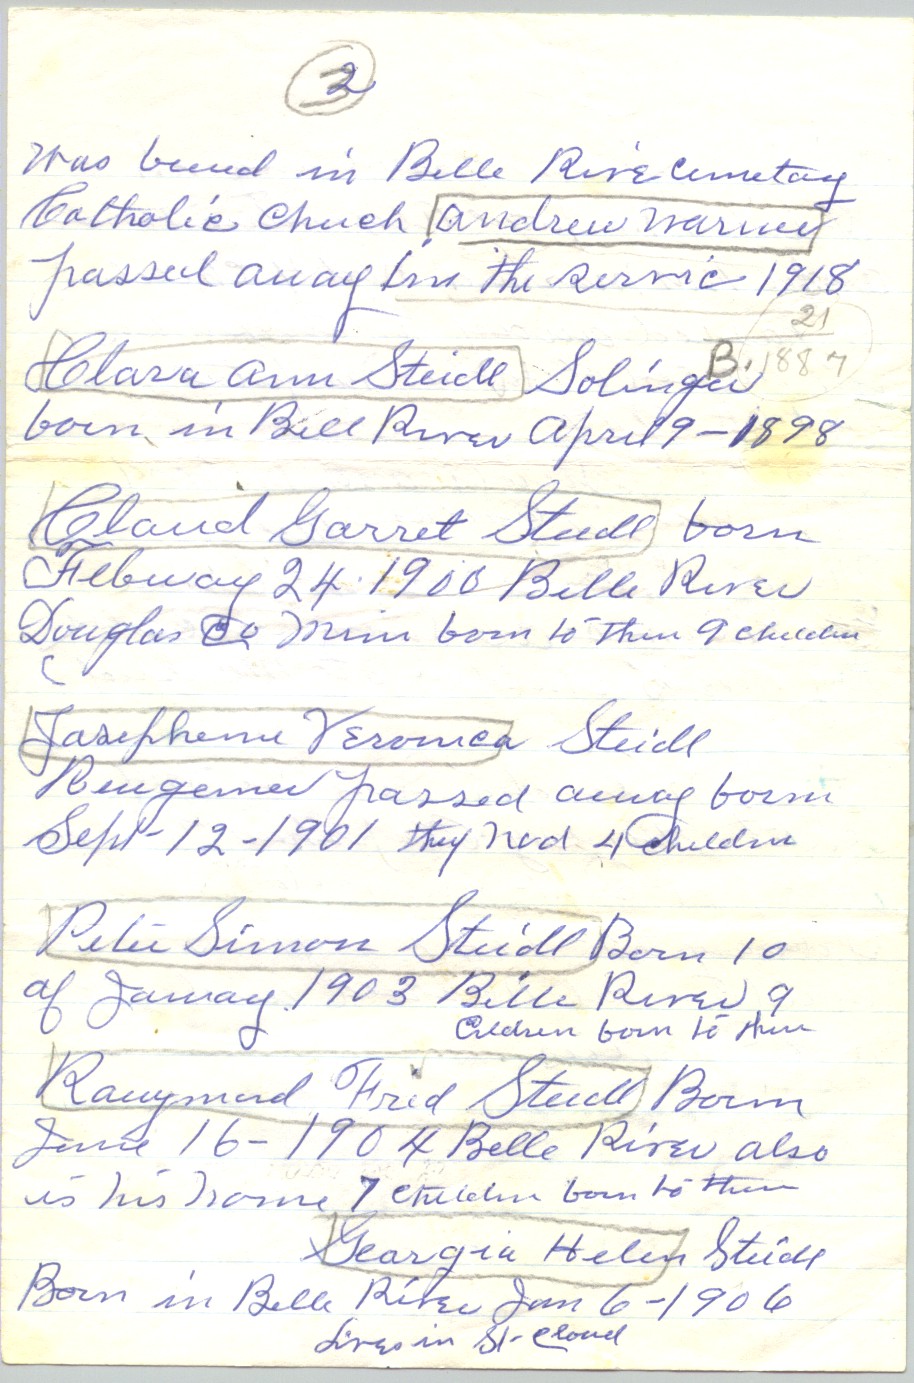 2
was buried in Belle River Cemetary
Catholic Chuch Andrew Warner
passed away in the servic 1918
21
B. 1887
Clara Ann Steidl Solinger
born in Bell River April 9-1898
Claud Garret Steidl born
Febuary 24 1900 Belle River
Douglas Co Minn born to them 9 children
Josephine Veronica Steidl
passed away born
Sept-12-1901 they had 4 children
Peter Simon Steidl Born 10
of January 1903 Belle River 9
Children born to them
Raymond Fred Steidl Born
June 16-1904 Belle River also
is his home 7 children born to them
Georgia Helen Steidl
Born in Belle River Jan 6-1906
Lives in St-Cloud